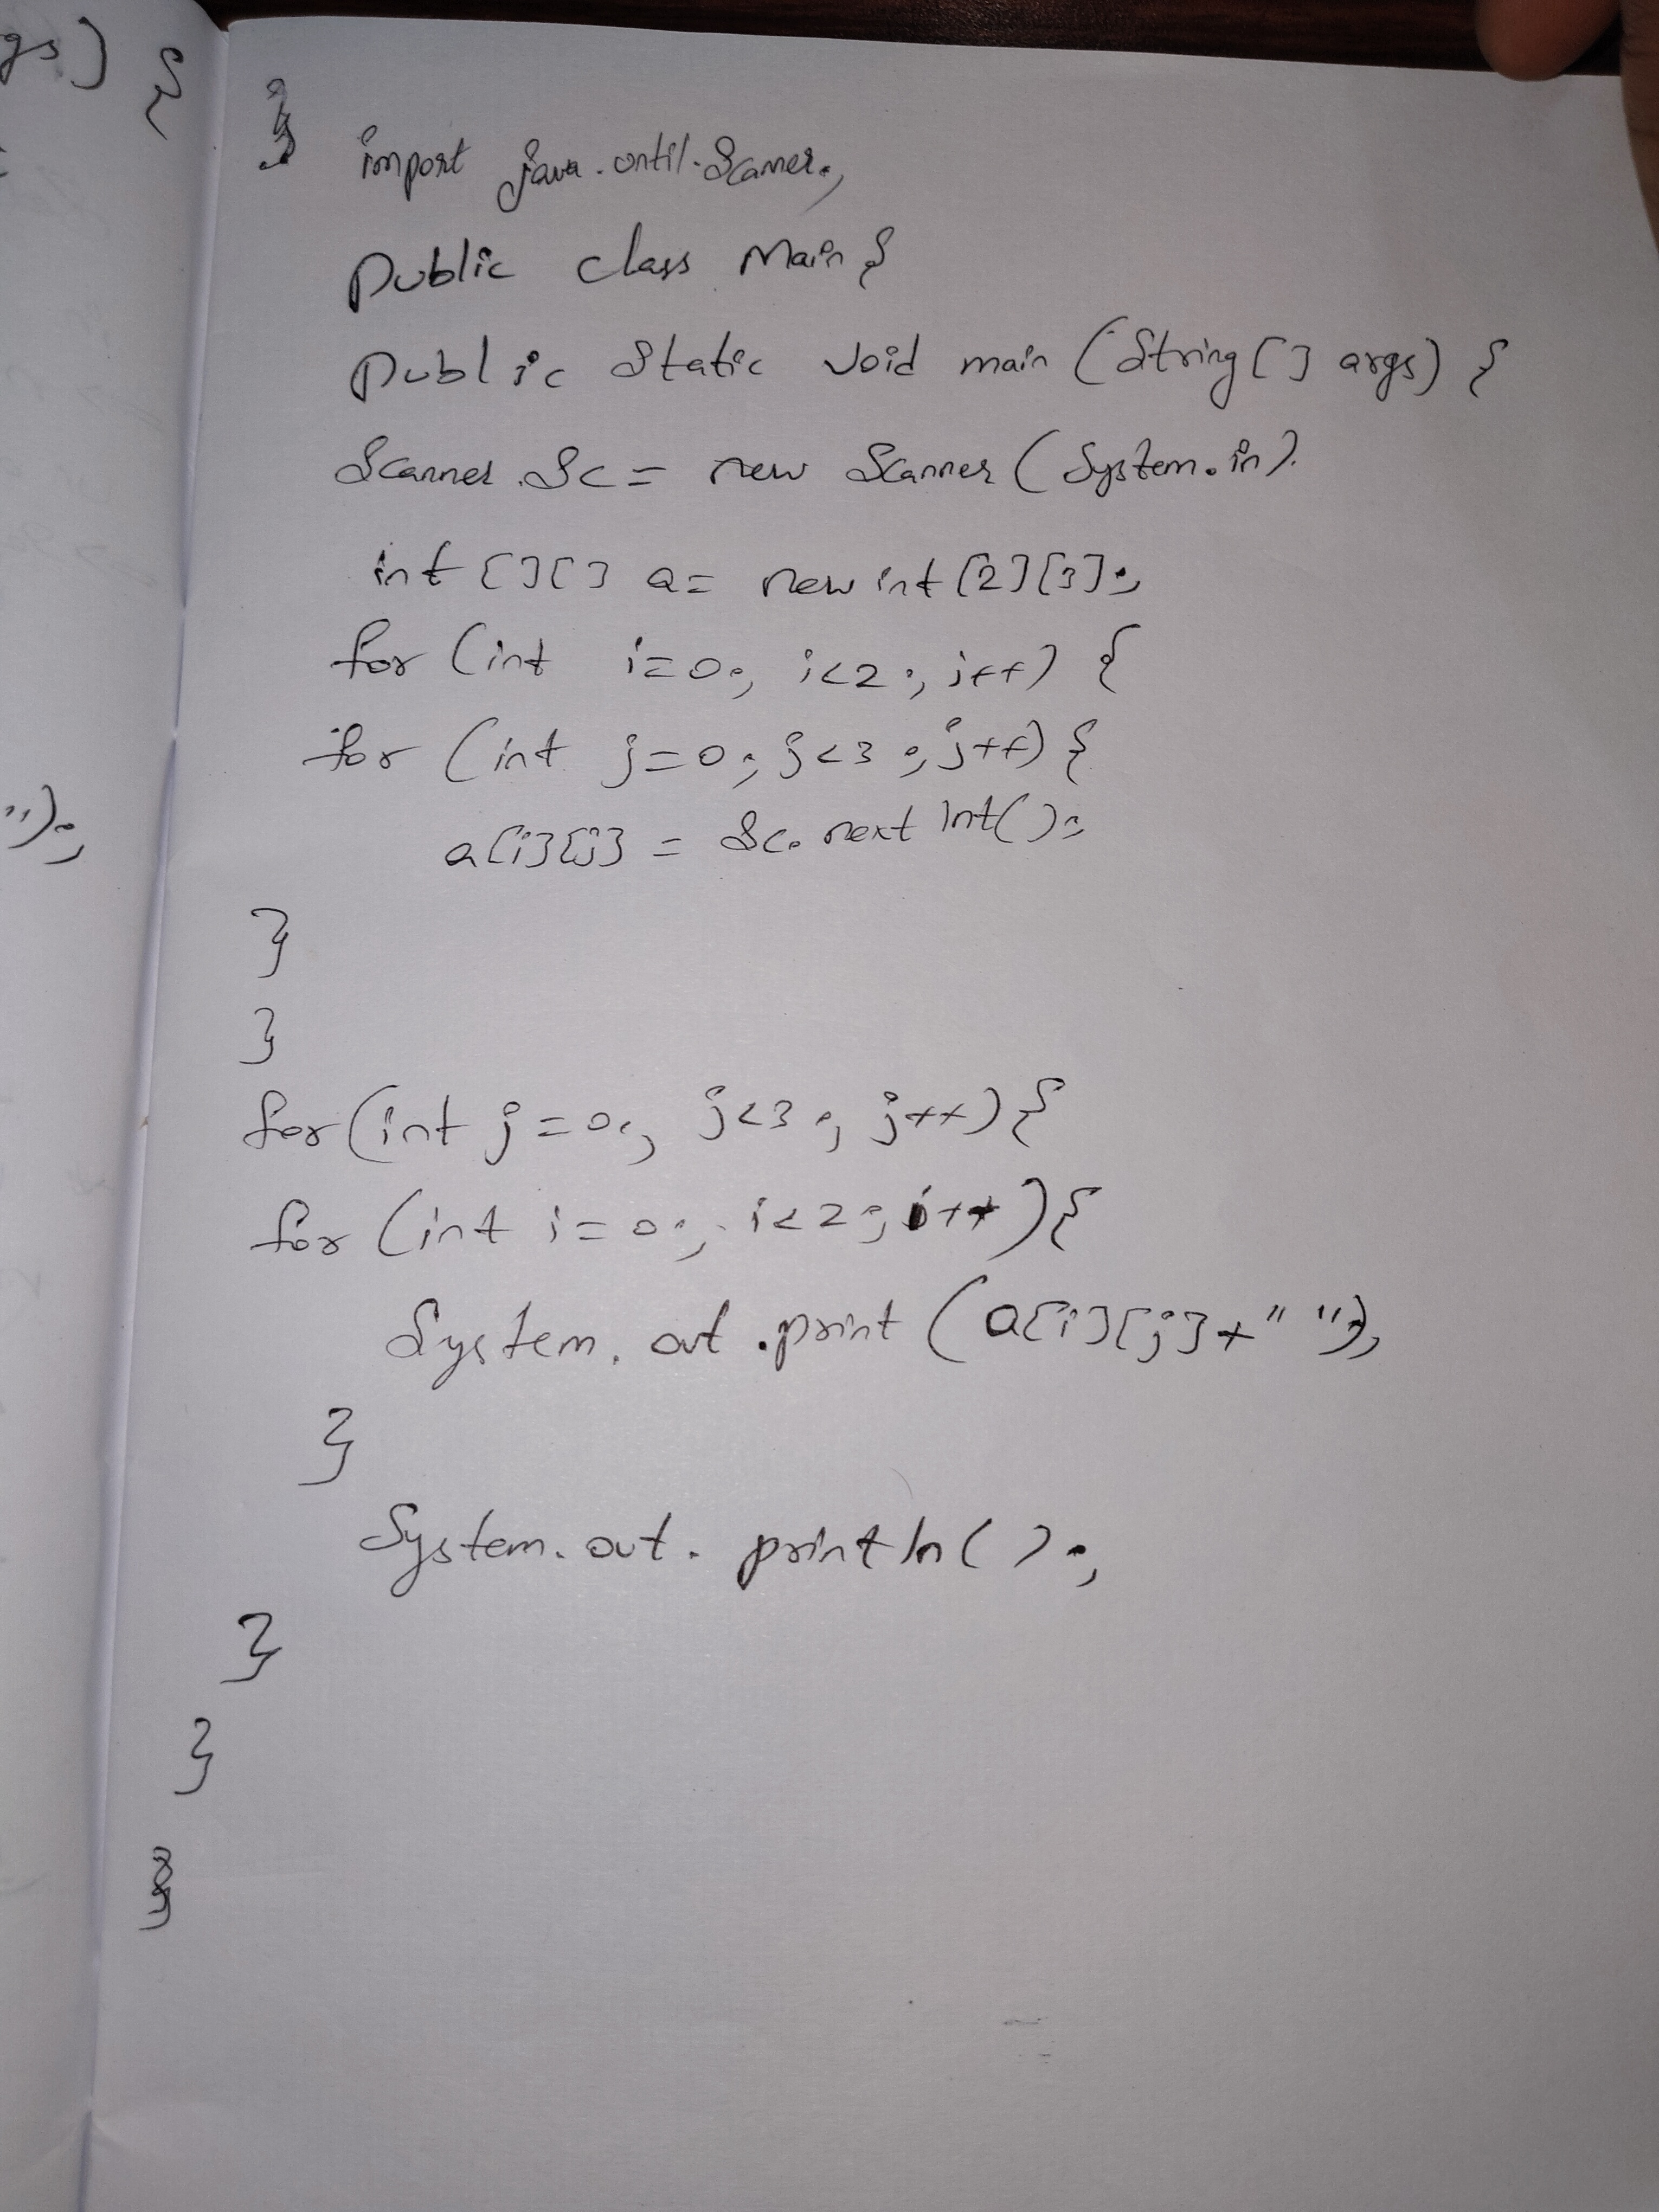 gs) {
");
}
import java.until.Scanner;
public class Main {
public static void main (String[] args) {
Scanner Sc = new Scanner (System.in).
int [][] a = new int [2][3];
for (int i=0; i<2; i++) {
for (int j=0; j<3; j++) {
a[i][j] = Sc.next Int();
}
}
for (int j=0; j<3; j++) {
for (int i=0; i<2; i++) {
System.out.print (a[i][j]+" ");
}
System.out.println();
}
}
}